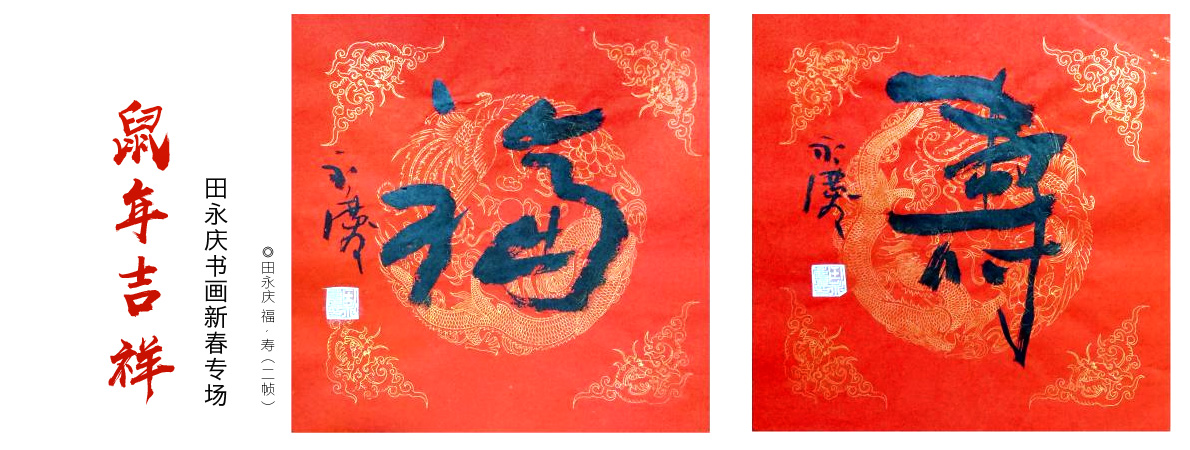 鼠年吉祥
田永庆书画新春专场
◎田永庆 福·寿（二帧）
福
永慶
壽
永慶